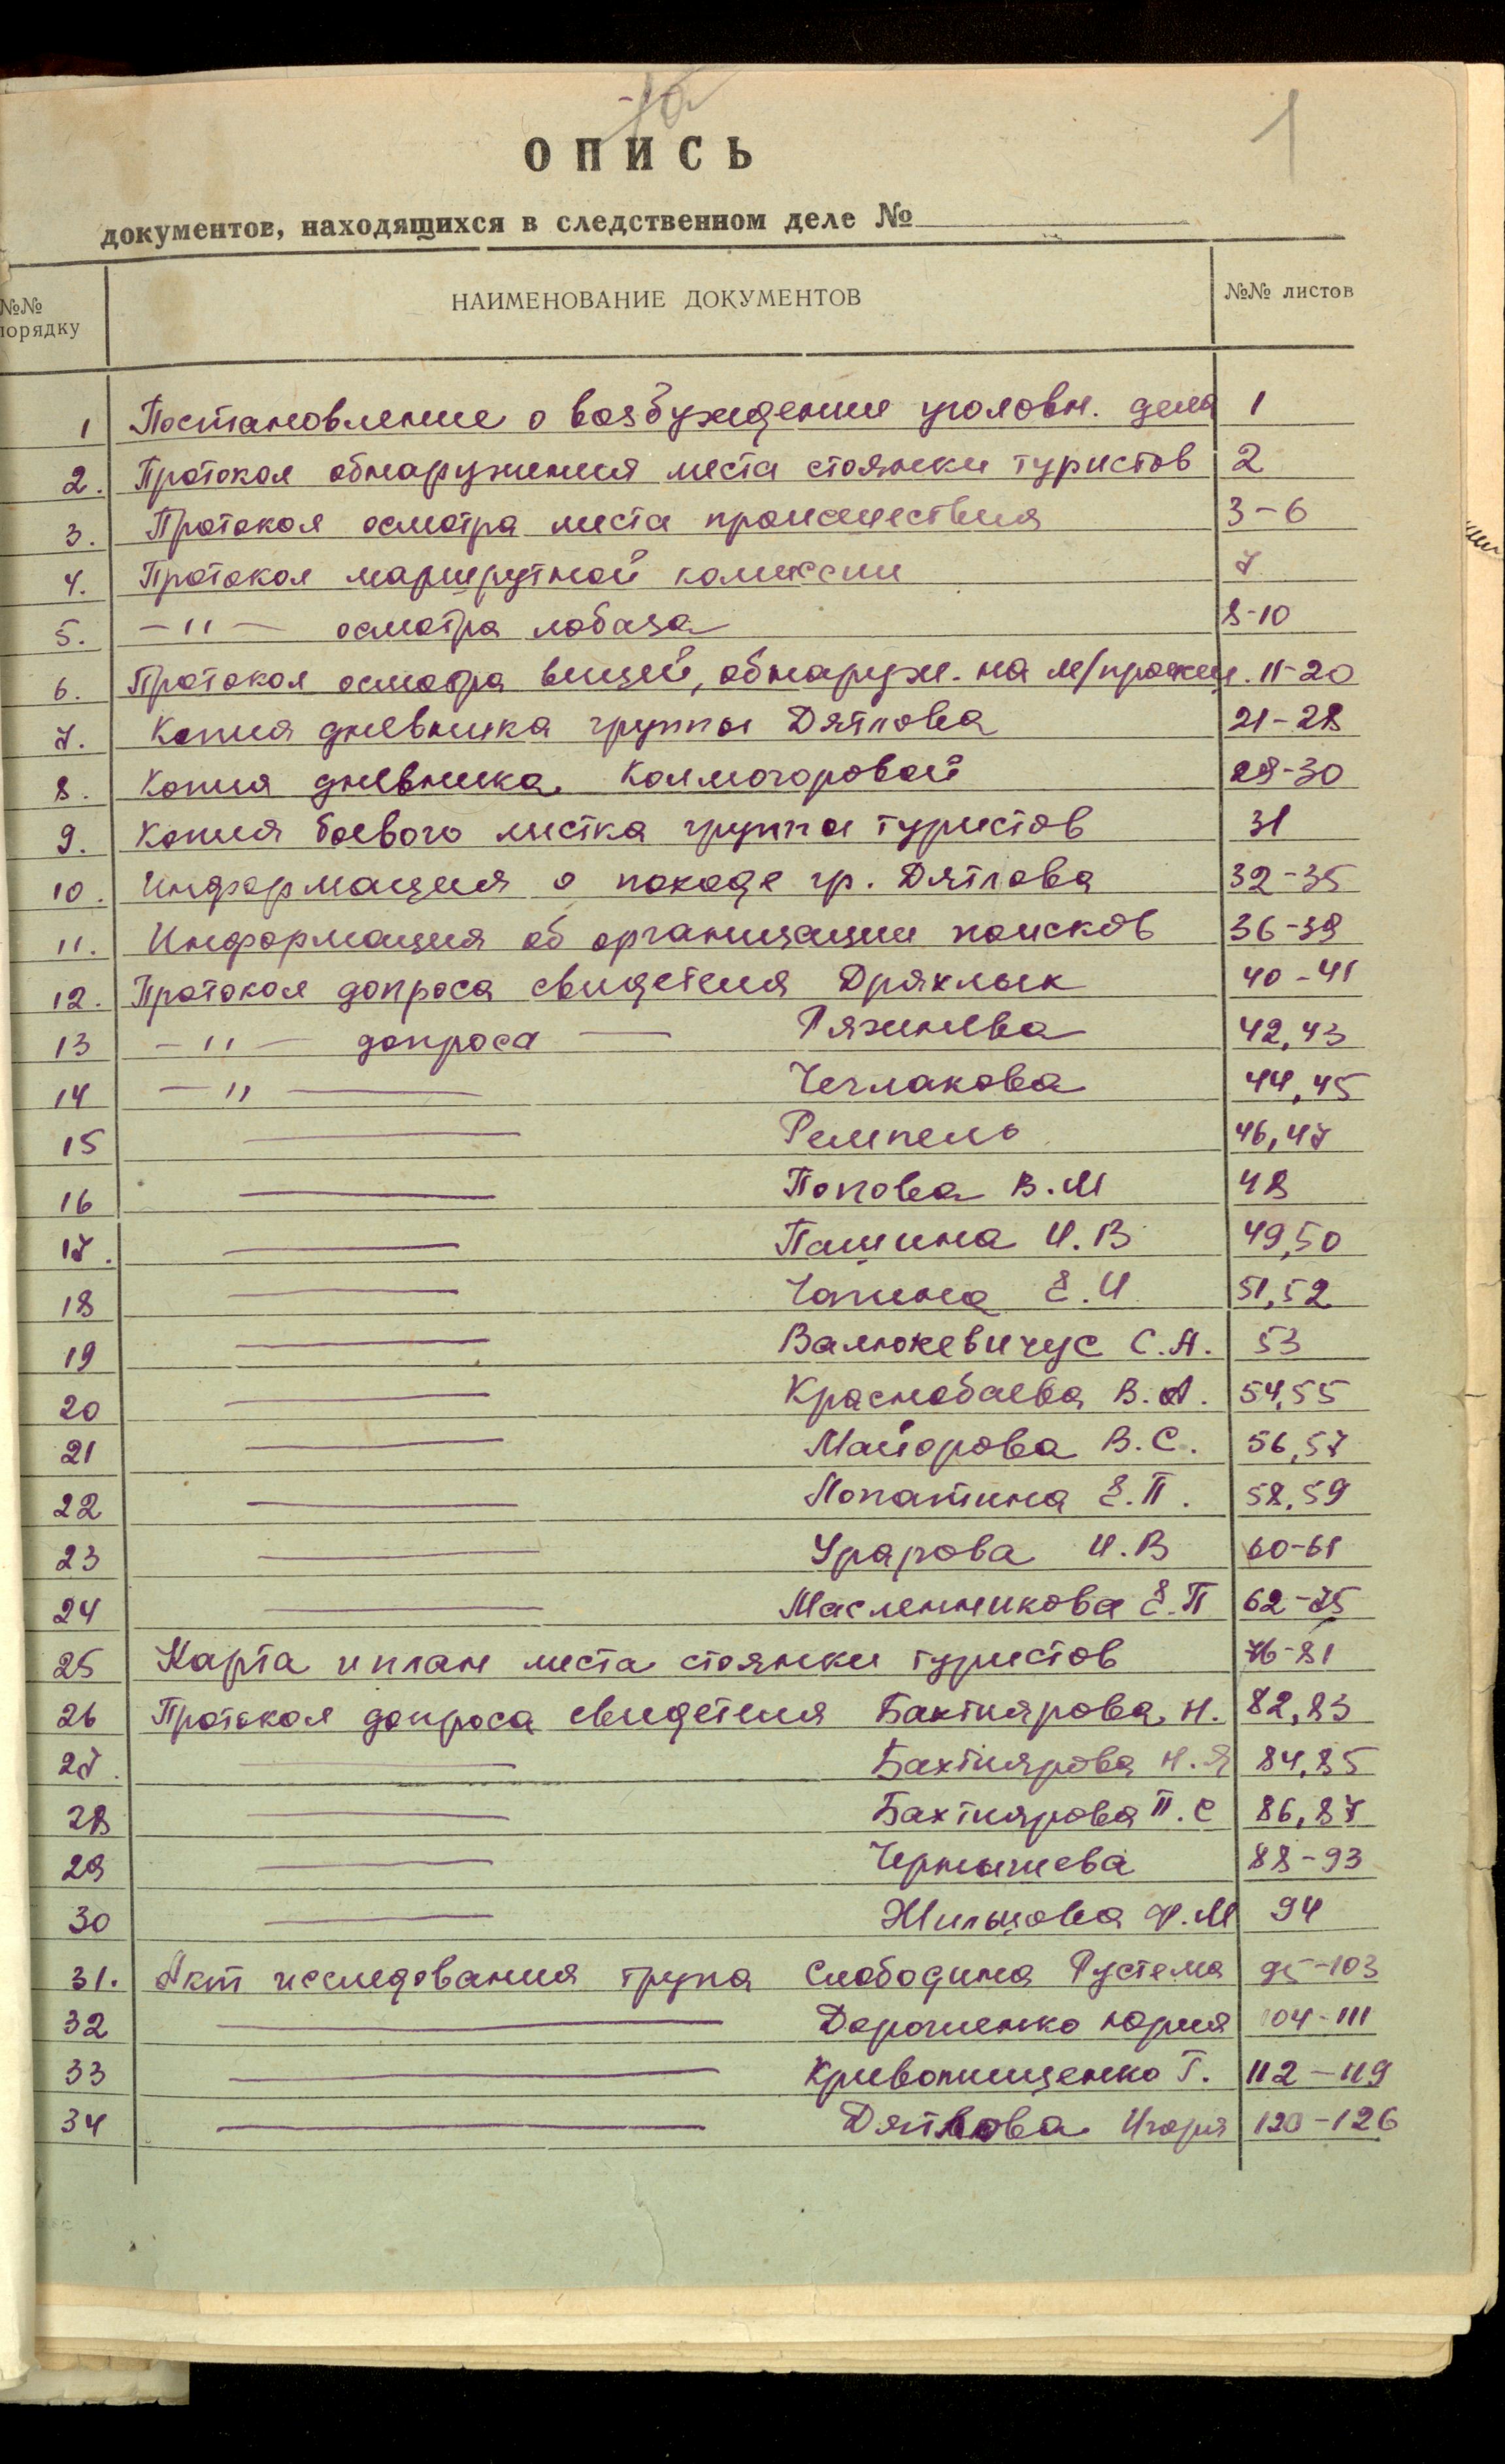 1
ОПИСЬ
документов, находящихся в следственном деле №
№№ порядку НАИМЕНОВАНИЕ ДОКУМЕНТОВ №№ листов
1 Постановление о возбуждении уголовн. дела 1
2. Протокол обнаружения места стоянки туристов 2
3. Протокол осмотра места происшествия 3-6
4. Протокол маршрутной комиссии 7
5. -"- осмотра лабаза 8-10
6. Протокол осмотра вещей, обнаруж. на м/происш. 11-20
7. Копия дневника группы Дятлова 21-28
8. Копия дневника Колмогоровой 29-30
9. Копия боевого листка группы туристов 31
10. Информация о походе гр. Дятлова 32-35
11. Информация об организации поисков 36-39
12. Протокол допроса свидетеля Дряхлых 40-41
13 -"- допроса — Ряжнева 42,43
14 -"- — Чеглакова 44,45
15 — Ремпель 46,47
16 — Попова В.М 48
17. — Пашина И.В 49,50
18 — Чапина Е.И 51,52
19 — Валюкевичус С.А. 53
20 — Краснобаева В.А. 54,55
21 — Майорова В.С. 56,57
22 — Лопатина Е.П. 58,59
23 — Уварова И.В 60-61
24 — Масленникова Е.П 62-75
25 Карта и план места стоянки туристов 76-81
26 Протокол допроса свидетеля Бахтиярова Н. 82,83
27. — Бахтиярова Н.Я 84,85
28 — Бахтиярова П.С 86,87
29 — Чернышева 88-93
30 — Жильцова Ф.М 94
31. Акт исследования трупа Слободина Рустема 95-103
32 — Дорошенко Юрия 104-111
33 — Кривонищенко Г. 112-119
34 — Дятлова Игоря 120-126